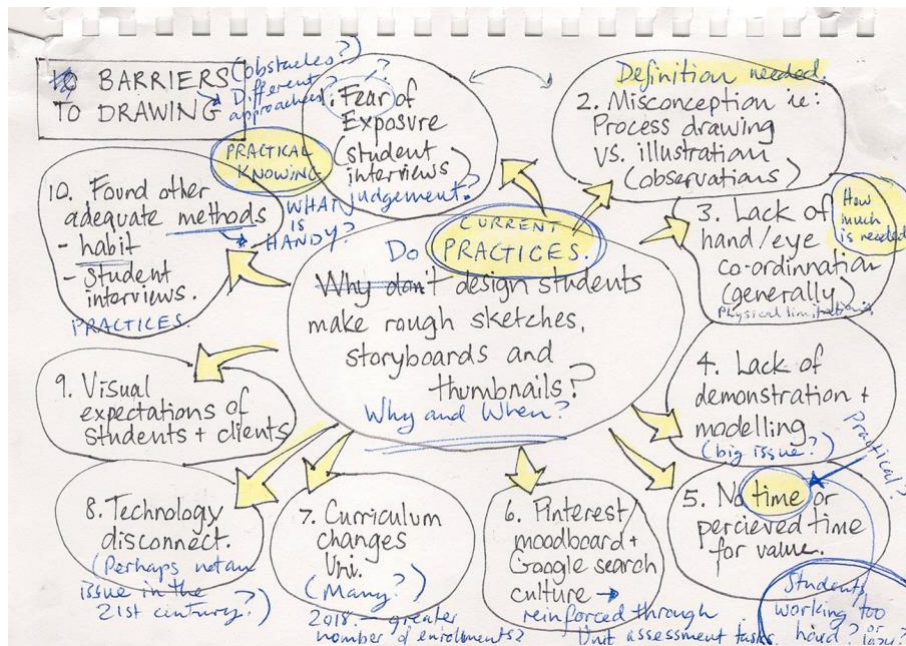 10 BARRIERS
TO DRAWING
(obstacles?)
Different
approaches?
1. Fear of
Exposure
(student
interviews
judgement?
?
Definition needed.
2. Misconception ie:
Process drawing
vs. illustration
(observations)
How
much
is needed
3. Lack of
hand/eye
co-ordinnation
(generally)
Physical limitations
4. Lack of
demonstration +
modelling
(big issue?)
Practical?
5. No time or
percieved time
for value.
Students
working too
hard? or
lazy?
6. Pinterest
moodboard +
Google search
culture →
reinforced through
Unit assessment tasks.
7. Curriculum
changes
Uni.
(Many?)
2018. — greater
number of enrollments?
8. Technology
disconnect.
(Perhaps not an
issue in the
21st century?)
9. Visual
expectations of
students + clients
10. Found other
adequate methods
- habit
- student
interviews.
PRACTICES.
PRACTICAL
KNOWING
WHAT
IS
HANDY?
CURRENT
PRACTICES.
Do
Why don't design students
make rough sketches,
storyboards and
thumbnails?
Why and When?